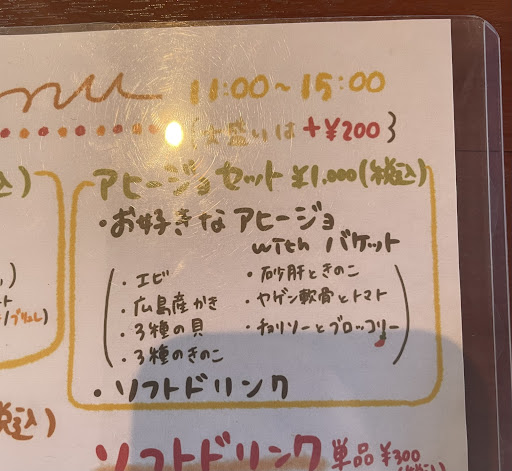 nu 11:00～15:00
(大盛りは +¥200}
込)
アヒージョセット ¥1,000(税込)
・お好きなアヒージョ
with バケット
・エビ
・広島産かき
・3種の貝
・3種のきのこ
・砂肝ときのこ
・ヤゲン軟骨とトマト
・チョリソーとブロッコリー
・ソフトドリンク
ート
ブリュレ)
税込)
ソフトドリンク 単品 ¥300